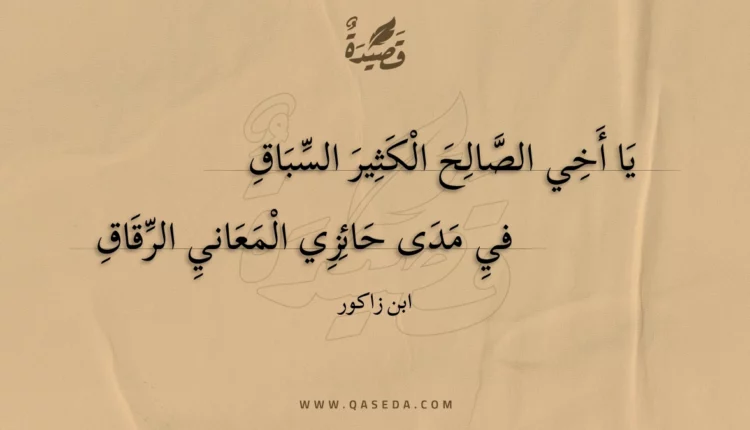 قَصِيْدَةٌ
يَا أَخِي الصَّالِحَ الْكَثِيرَ السِّبَاقِ
فيِ مَدَى حَائِزِي الْمَعَانيِ الرِّقَاقِ
ابن زاكور
WWW.QASEDA.COM